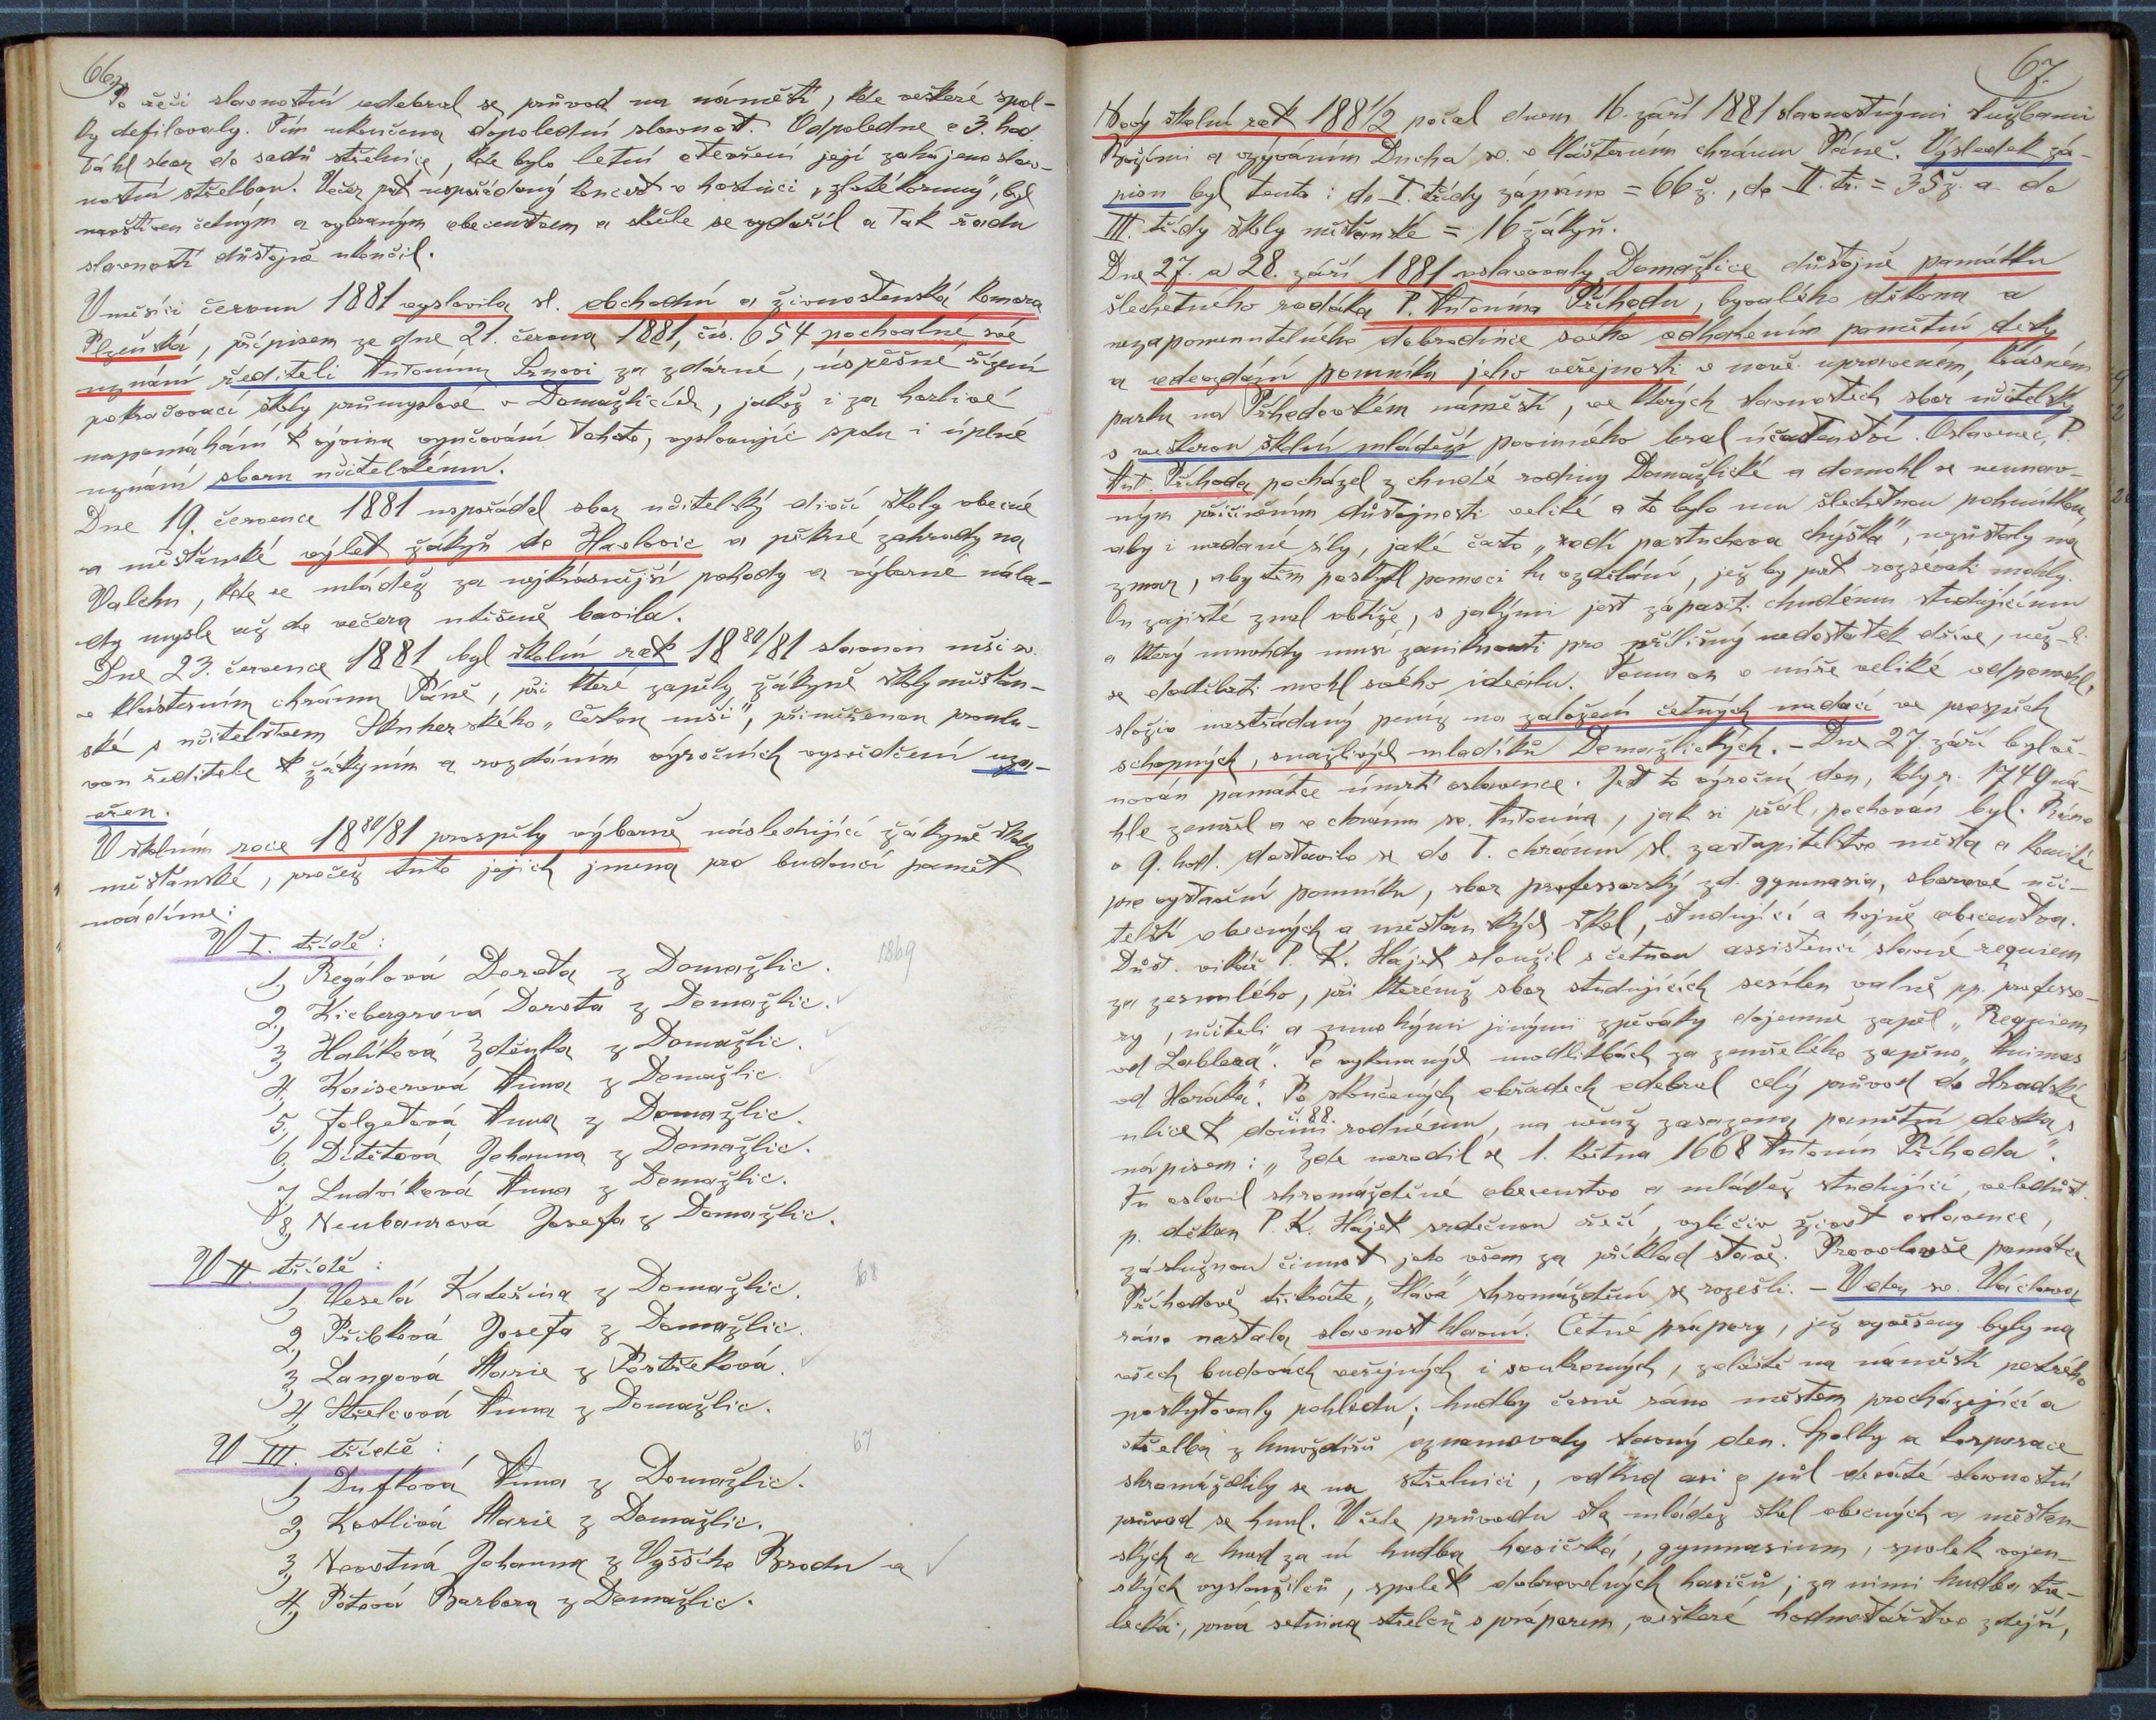 66.
Po řeči slavnostní odebral se průvod na náměstí, kde veškeré spol-
ky defilovaly. Tím ukončena dopolední slavnost. Odpoledne o 3. hod
táhl sbor do sadů střelnice, kde bylo letní otevření její zahájeno slav-
nostní střelbou. Večer pak uspořádaný koncert v hostinci „zlaté koruny“, byl
navštíven četným a vybraným obecenstvem a skvěle se vydařil a tak řadu
slavností důstojně ukončil.
V měsíci červnu 1881 vyslovila sl. obchodní a živnostenská komora
Plzeňská, přípisem ze dne 21. června 1881, čís. 654 pochvalné své
uznání řediteli Antonínu Srnovi za zdárné, úspěšné řízení
pokračovací školy průmyslové v Domažlicích, jakož i za horlivé
napomáhání k vývinu vyučování tohoto, vyslovujíc spolu i úplné
uznání sboru učitelskému.
Dne 19. července 1881 uspořádal sbor učitelský dívčí školy obecné
a měšťanské výlet žákyň do Havlovic a pěkné zahrady na
Valchu, kde se mládež za nejkrásnější pohody a výborné nála-
dy mysle až do večera utěšeně bavila.
Dne 23. července 1881 byl školní rok 1880/81 slavnou mší sv.
v klášterním chrámu Páně, při které zapěly žákyně školy měšťan-
ské s učitelstvem Skuherského „českou mši“, přiměřenou promlu-
vou ředitele k žákyním a rozdáním výročních vysvědčení uza-
vřen.
V školním roce 1880/81 prospěly výborně následující žákyně školy
měšťanské, pročež tuto jejich jmena pro budoucí paměť
uvádíme:
V I. třídě:
1869
1, Regálová Dorota z Domažlic.
2, Kiebergrová Dorota z Domažlic.
3, Halíková Zděnka z Domažlic.
4, Kaiserová Anna z Domažlic.
5, Folgetová Anna z Domažlic.
6, Dítětová Johanna z Domažlic.
7, Ludvíková Anna z Domažlic.
8, Neubaurová Josefa z Domažlic.
V II. třídě:
68
1, Veselá Kateřina z Domažlic.
2, Přibková Josefa z Domažlic.
3, Langová Marie z Postřekova.
4, Střelcová Anna z Domažlic.
V III. třídě:
67
1, Dufková Anna z Domažlic.
2, Kotlivá Marie z Domažlic.
3, Novotná Johanna z Vyššího Brodu a
4, Potová Barbora z Domažlic.
67.
Nový školní rok 1881/2 počal dnem 16. září 1881 slavnostnými službami
Božími a vzýváním Ducha sv. v klášterním chrámu Páně. Výsledek zá-
pisu byl tento: do I. třídy zapsáno = 66 ž., do II. tř. = 35 ž. a do
III. třídy školy měšťanské = 16 žákyň.
Dne 27. a 28. září 1881 oslavovaly Domažlice důstojně památku
šlechetného rodáka P. Antonína Příhodu, bývalého děkana a
nezapomenutelného dobrodince svého odhalením pamětní desky
a odevzdáním pomníku jeho veřejnosti v nově upraveném, krásném
parku na Příhodovském náměstí, ve kterých slavnostech sbor učitelský
s veškerou školní mládeží povinného bral účastenství. Oslavenec, P.
Ant. Příhoda pocházel z chudé rodiny Domažlické a domohl se neunav-
ným přičiněním důstojnosti veliké a to bylo mu šlechetnou pohnutkou,
aby i nadané síly, jaké často „rodí pastuchova chýška“, nezůstaly na
zmar, aby těm poskytl pomoci ku vzdělání, jež by pak rozsévati mohly.
On zajisté znal obtíže, s jakými jest zápasiti chudému studujícímu
a který mnohdy musí zaniknouti pro přílišný nedostatek dříve, než-li
se dodělati mohl svého ideálu. Tomu on v míře veliké odpomohl,
složiv nastřádaný peníz na založení četných nadací ve prospěch
schopných, snaživých mladíků Domažlických. – Dne 27. září byl vě-
nován památce úmrtí oslavence. Jest to výroční den, kdy r. 1749 ná-
hle zemřel a v chrámu sv. Antonína, jak si přál, pochován byl. Ráno
o 9. hod. dostavilo se do t. chrámu sl. zastupitelstvo města a komité
pro vystavění pomníku, sbor professorský zd. gymnasia, sborové uči-
telští obecných a měšťanských škol, studující a hojně obecenstva.
Důst. vikář P. K. Hájek sloužil s četnou assistencí slavné requiem
za zesnulého, při kteremž sbor studujících sesílen valně pp. professo-
ry, učiteli a mnohými jinými zpěváky dojemně zapěl „Requiem
od Loblera“. Po vykonaných modlitbách za zemřelého zapěno „Animas
od Horáka“. Po skončených obřadech odebral celý průvod do Hradské
ulice k domu č. 88. rodnému, na němž zasazena pamětní deska s
nápisem: „Zde narodil se 1. května 1668 Antonín Příhoda“.
Tu oslovil shromážděné obecenstvo a mládež studující, veledůst.
p. děkan P. K. Hájek srdečnou řečí, vylíčiv život oslavence,
záslužnou činnost jeho všem za příklad stavě. Provolavše památce
Příhodově třikráte „Sláva“ shromáždění se rozešli. – V den sv. Václava
ráno nastala slavnost hlavní. Četné prapory, jež vyvěšeny byly na
všech budovách veřejných i soukromých, zvláště na náměstí pestrého
poskytovaly pohledu; hudby časně ráno městem procházející a
střelba z hmoždířů oznamovaly slavný den. Spolky a korporace
shromáždily se na střelnici, odkud asi o půl deváté slavnostní
průvod se hnul. V čele průvodu šla mládež škol obecných a měšťan-
ských a hned za ní hudba hasičská, gymnasium, spolek vojen-
ských vysloužilců, spolek dobrovolných hasičů; za nimi hudba stře-
lecká, prvá setnina střelců s praporem, veškeré hodnostářstvo zdejší,